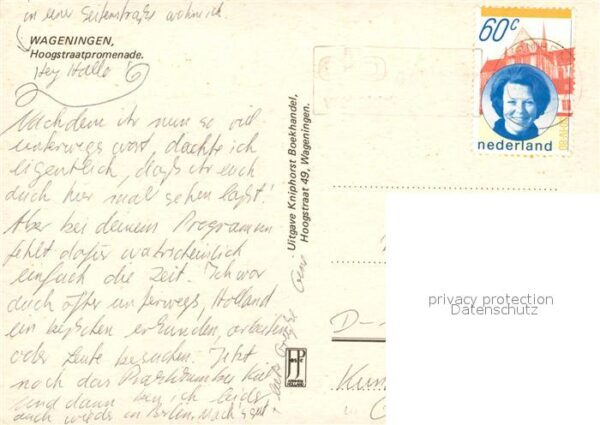 in einer Seitenstraße wohn ich
WAGENINGEN,
Hoogstraatpromenade.
Hey Hallo
Nachdem ihr nun so viel
unterwegs wart, dachte ich
eigentlich, daß ihr euch
auch hier mal sehen laßt!
Aber bei deinem Programm
fehlt dafür wahrscheinlich
einfach die Zeit. Ich war
auch öfter unterwegs, Holland
ein bißchen erkunden, arbeiten
oder Leute besuchen. Jetzt
noch das Praktikum bei
und dann bin ich leider
auch wieder in Berlin. Mach's gut!
Uitgave Kniphorst Boekhandel,
Hoogstraat 49, Wageningen.
60c
nederland
D-
privacy protection
Datenschutz